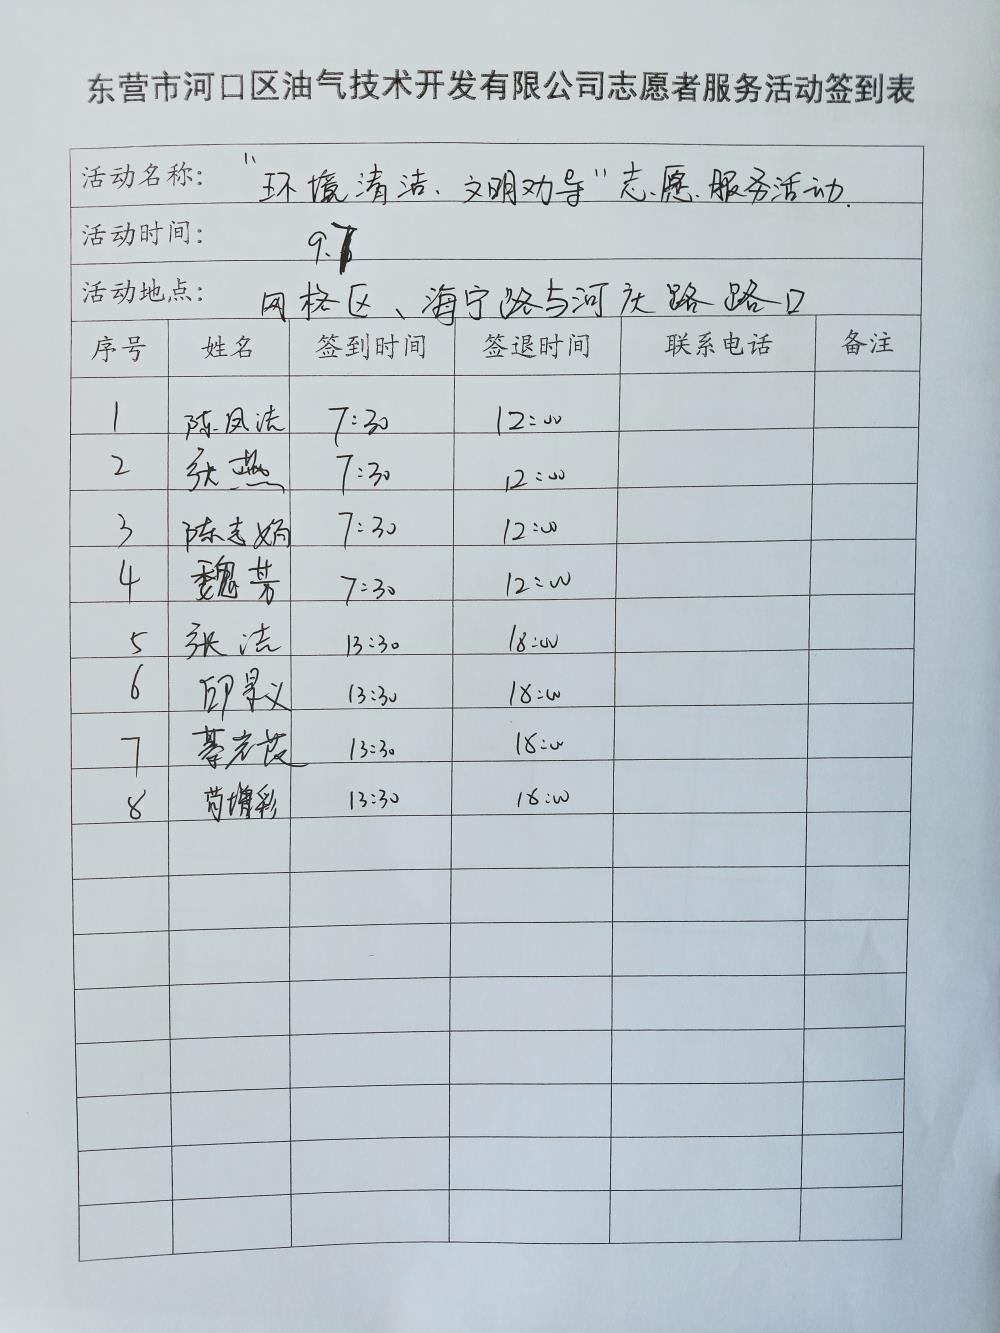 东营市河口区油气技术开发有限公司志愿者服务活动签到表
活动名称: "环境清洁、文明劝导"志愿服务活动.
活动时间: 9.7
活动地点: 网格区、海宁路与河庆路路口
序号 姓名 签到时间 签退时间 联系电话 备注
1 陈凤洁 7:30 12:00
2 张燕 7:30 12:00
3 陈志娟 7:30 12:00
4 魏芳 7:30 12:00
5 张洁 13:30 18:00
6 邱景义 13:30 18:00
7 13:30 18:00
8 苟增彩 13:30 18:00